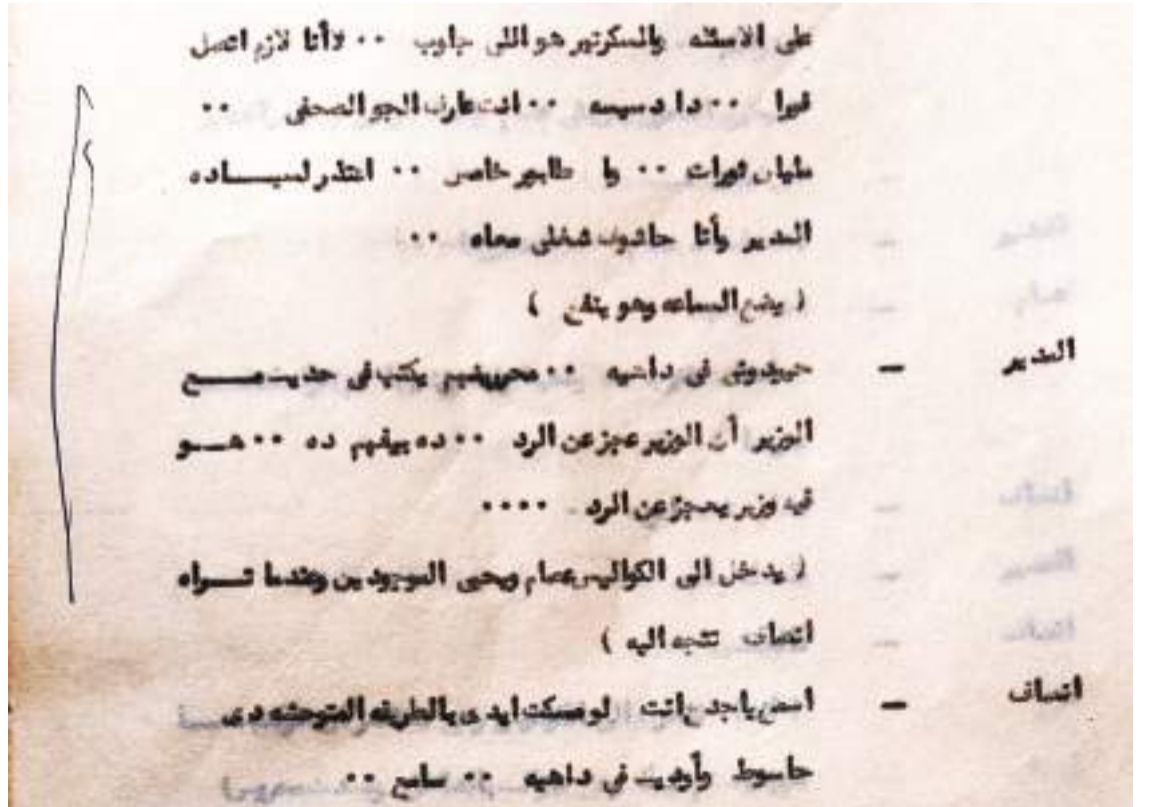 على الاسئله والسكرتير هو اللى جاوب ٠٠ لأنا لازم اتصل
فورا ٠٠ دا دسيسه ٠٠ انت عارف الجو الصحفى ٠٠
مليان ثورات ٠٠ و طابور خامس ٠٠ اعتذر لسيـــاده
المدير وأنا حاشوف شغلى معاه ٠٠
( يضع الساعه وهو ينفخ )
المدير — حيودونى فى داهيه ٠٠ محرريهم يكتب فى حديث مـــع
الوزير أن الوزير عجز عن الرد ٠٠ ده بيفهم ده ٠٠ هـــو
فيه وزير يعجز عن الرد ٠٠٠٠
( يدخل الى الكواليس عصام ويحيى الموجودين وعندما تـــراه
انصاف تتجه اليه )
انصاف — اسمع ياجدع انت لو مسكت ايدى بالطريقه المتوحشه دى
حاسوط وأوديك فى داهيه ٠٠ سامع ٠٠